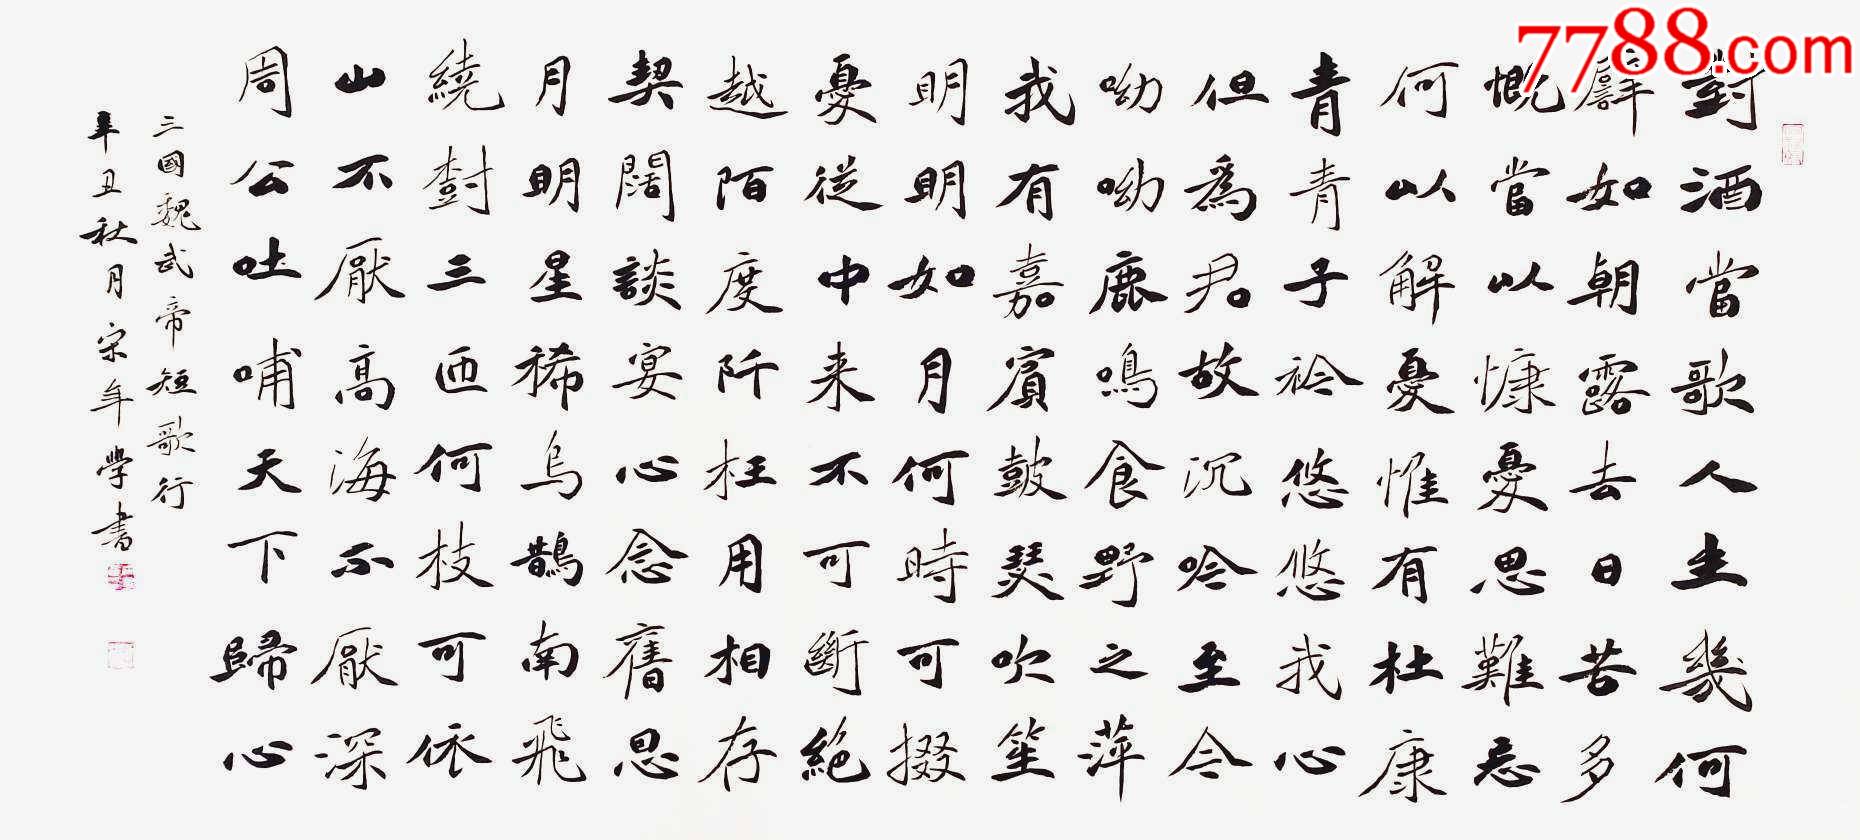 對酒當歌人生幾何
譬如朝露去日苦多
慨當以慷憂思難忘
何以解憂惟有杜康
青青子衿悠悠我心
但為君故沉吟至今
呦呦鹿鳴食野之萍
我有嘉賓鼓瑟吹笙
明明如月何時可掇
憂從中来不可斷絕
越陌度阡枉用相存
契闊談宴心念舊恩
月明星稀烏鵲南飛
繞樹三匝何枝可依
山不厭高海不厭深
周公吐哺天下歸心
三國魏武帝短歌行
辛丑秋月宋年學書
7788.com